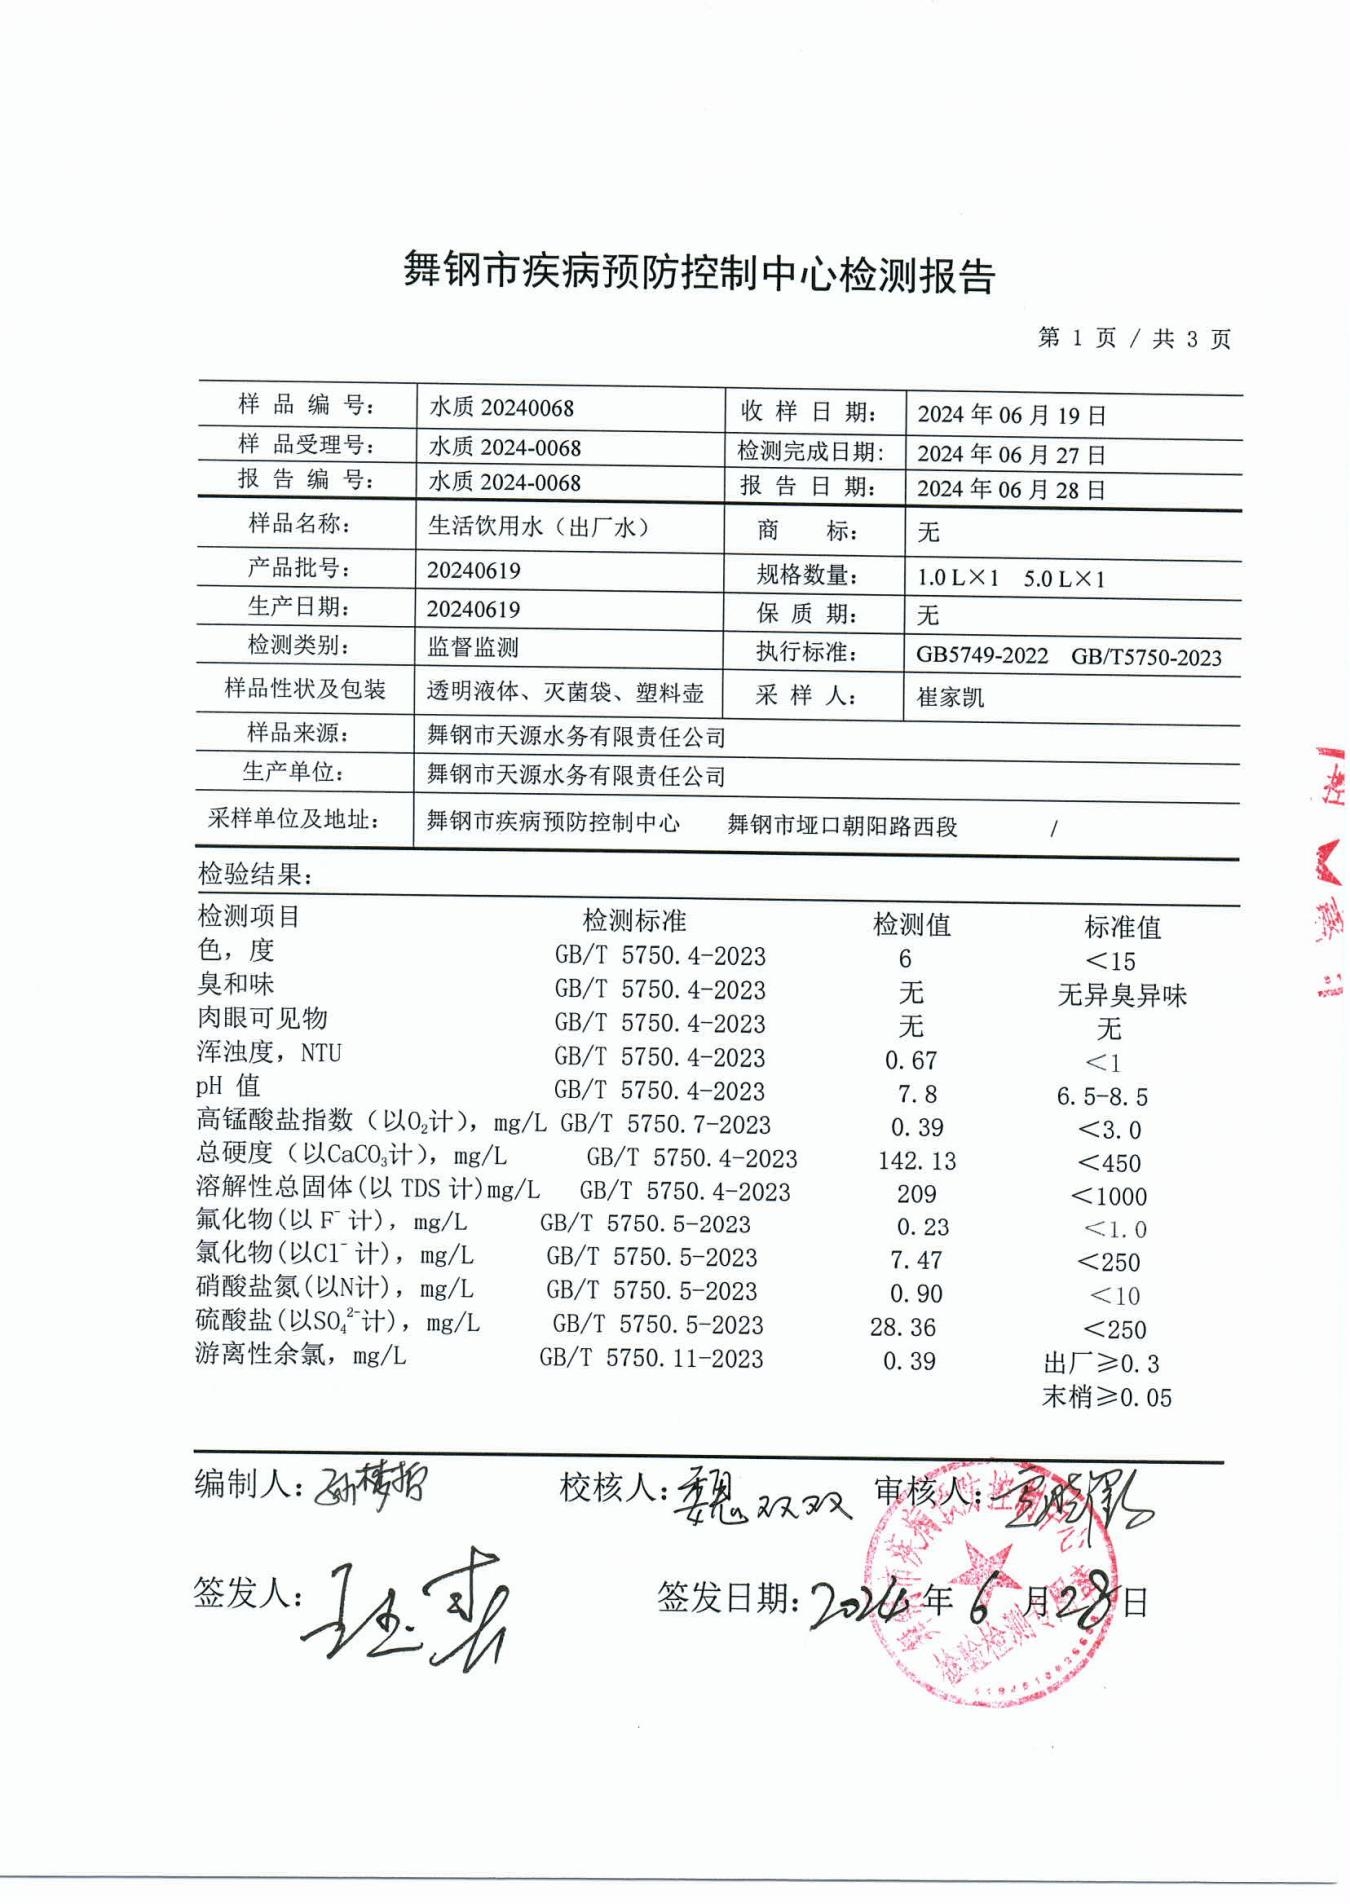 舞钢市疾病预防控制中心检测报告
第 1 页 / 共 3 页
样 品 编 号: 水质 20240068 收 样 日 期: 2024 年 06 月 19 日
样 品受理号: 水质 2024-0068 检测完成日期: 2024 年 06 月 27 日
报 告 编 号: 水质 2024-0068 报 告 日 期: 2024 年 06 月 28 日
样品名称: 生活饮用水（出厂水） 商 标: 无
产品批号: 20240619 规格数量: 1.0 L×1 5.0 L×1
生产日期: 20240619 保 质 期: 无
检测类别: 监督监测 执行标准: GB5749-2022 GB/T5750-2023
样品性状及包装 透明液体、灭菌袋、塑料壶 采 样 人: 崔家凯
样品来源: 舞钢市天源水务有限责任公司
生产单位: 舞钢市天源水务有限责任公司
采样单位及地址: 舞钢市疾病预防控制中心 舞钢市垭口朝阳路西段 /
检验结果:
检测项目 检测标准 检测值 标准值
色，度 GB/T 5750.4-2023 6 <15
臭和味 GB/T 5750.4-2023 无 无异臭异味
肉眼可见物 GB/T 5750.4-2023 无 无
浑浊度，NTU GB/T 5750.4-2023 0.67 <1
pH 值 GB/T 5750.4-2023 7.8 6.5-8.5
高锰酸盐指数（以O₂计），mg/L GB/T 5750.7-2023 0.39 <3.0
总硬度（以CaCO₃计），mg/L GB/T 5750.4-2023 142.13 <450
溶解性总固体(以 TDS 计)mg/L GB/T 5750.4-2023 209 <1000
氟化物(以 F⁻ 计)，mg/L GB/T 5750.5-2023 0.23 <1.0
氯化物(以Cl⁻ 计)，mg/L GB/T 5750.5-2023 7.47 <250
硝酸盐氮(以N计)，mg/L GB/T 5750.5-2023 0.90 <10
硫酸盐(以SO₄²⁻计)，mg/L GB/T 5750.5-2023 28.36 <250
游离性余氯，mg/L GB/T 5750.11-2023 0.39 出厂≥0.3
末梢≥0.05
编制人: 孙梦哲 校核人: 魏双双 审核人:
签发人: 签发日期: 2024 年 6 月 28 日
检验检测专用章